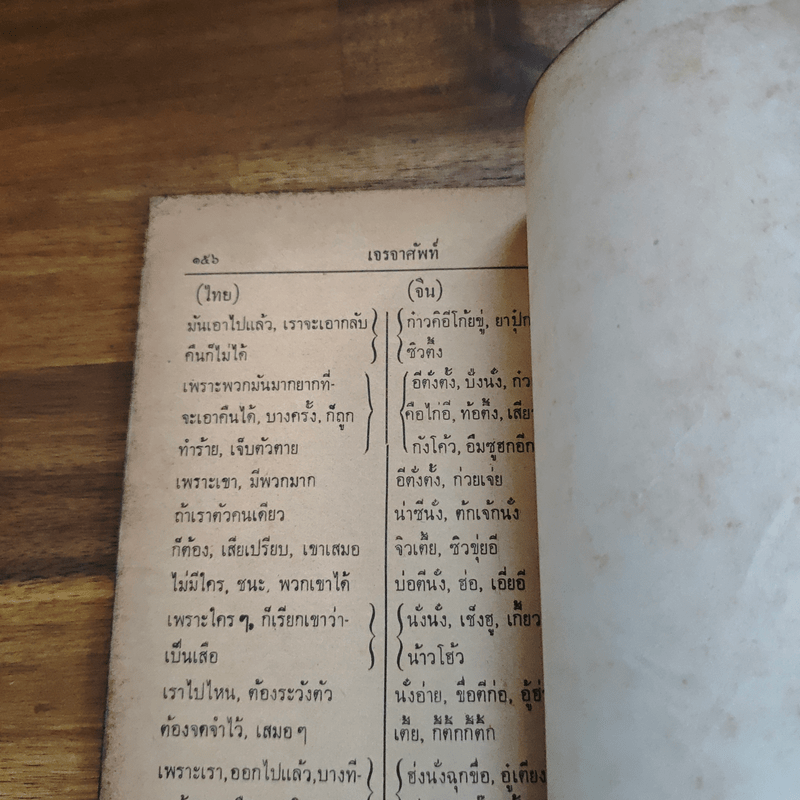 ๑๕๖ เจรจาศัพท์
(ไทย) (จิน)
มันเอาไปแล้ว, เราจะเอากลับ ก๋าวคิอีโก้ยขู่, ยาปุ๊ก
คืนก็ไม่ได้ ซิวติ๋ง
เพราะพวกมันมากยากที่- อีตั่งตั้ง, บังนั้ง, ก๋ว
จะเอาคืนได้, บางครั้ง, ก็ถูก คือไก่อี, ท้อติ๋ง, เสีย
ทำร้าย, เจ็บตัวตาย กังโค้ว, อึมซูฮกอีก
เพราะเขา, มีพวกมาก อีตั่งตั้ง, ก่วยเจ่ย
ถ้าเราตัวคนเดียว น่าซีนั้ง, ตักเจ้กนั้ง
ก็ต้อง, เสียเปรียบ, เขาเสมอ จิวเตี๋ย, ซิวขุ่ยอี
ไม่มีใคร, ชนะ, พวกเขาได้ บ่อตีนั้ง, ฮ่อ, เอี่ยอี
เพราะใคร ๆ, ก็เรียกเขาว่า- นั้งนั้ง, เช็งฮู, เกี้ยว
เป็นเสือ น้าวโฮ้ว
เราไปไหน, ต้องระวังตัว นั้งอ่าย, ชื่อตีก่อ,
ต้องจดจำไว้, เสมอ ๆ เตี๋ย, กี๋ตักกี๋ตัก
เพราะเรา, ออกไปแล้ว, บางที- ฮ่งนั้งฉุกขื่อ, อู๋เตียง